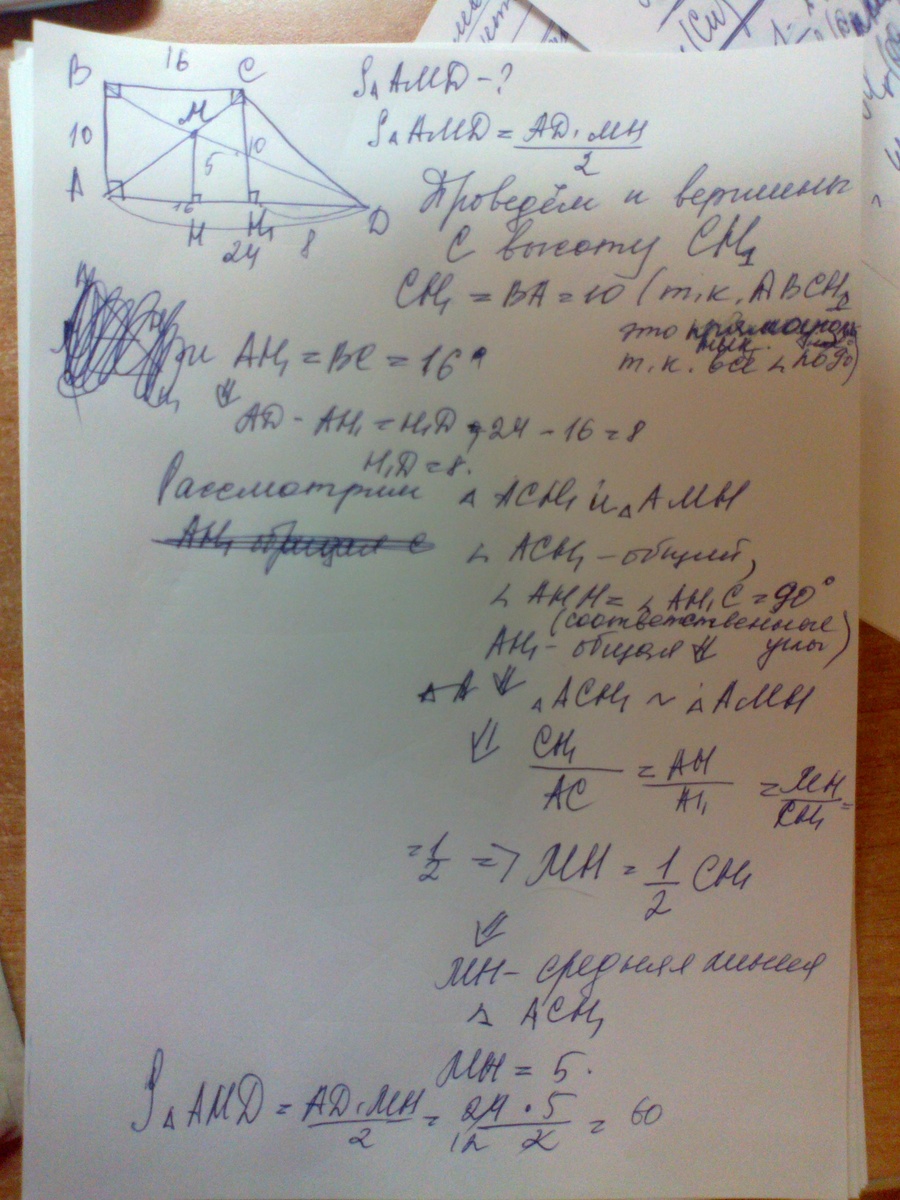 B 16 C
M
10 5 10
A 16 H H₁ D
24 8
S△AMD - ?
S△AMD = AD · MH / 2
Проведём к вершины
C высоту CH₁
CH₁ = BA = 10 (т.к. ABCH₁
это прямоуголь
ник.
т.к. все ∠ по 90°)
AH₁ = BC = 16
⇓
AD - AH₁ = H₁D = 24 - 16 = 8
H₁D = 8.
Рассмотрим △ ACH₁ и △ AMH
AH₁ общая с
∠ ACH₁ - общий,
∠ AHM = ∠ AH₁C = 90°
(соответственные
углы)
AH₁ - общая ⇓
△A ⇓ △ ACH₁ ~ △ AMH
⇓ CH₁ / AC = AH / AH₁ = MH / CH₁ =
= 1/2 => MH = 1/2 CH₁
⇓
MH - средняя линия
△ ACH₁
MH = 5.
S△AMD = AD · MH / 2 = 24 · 5 / 2 = 60
12